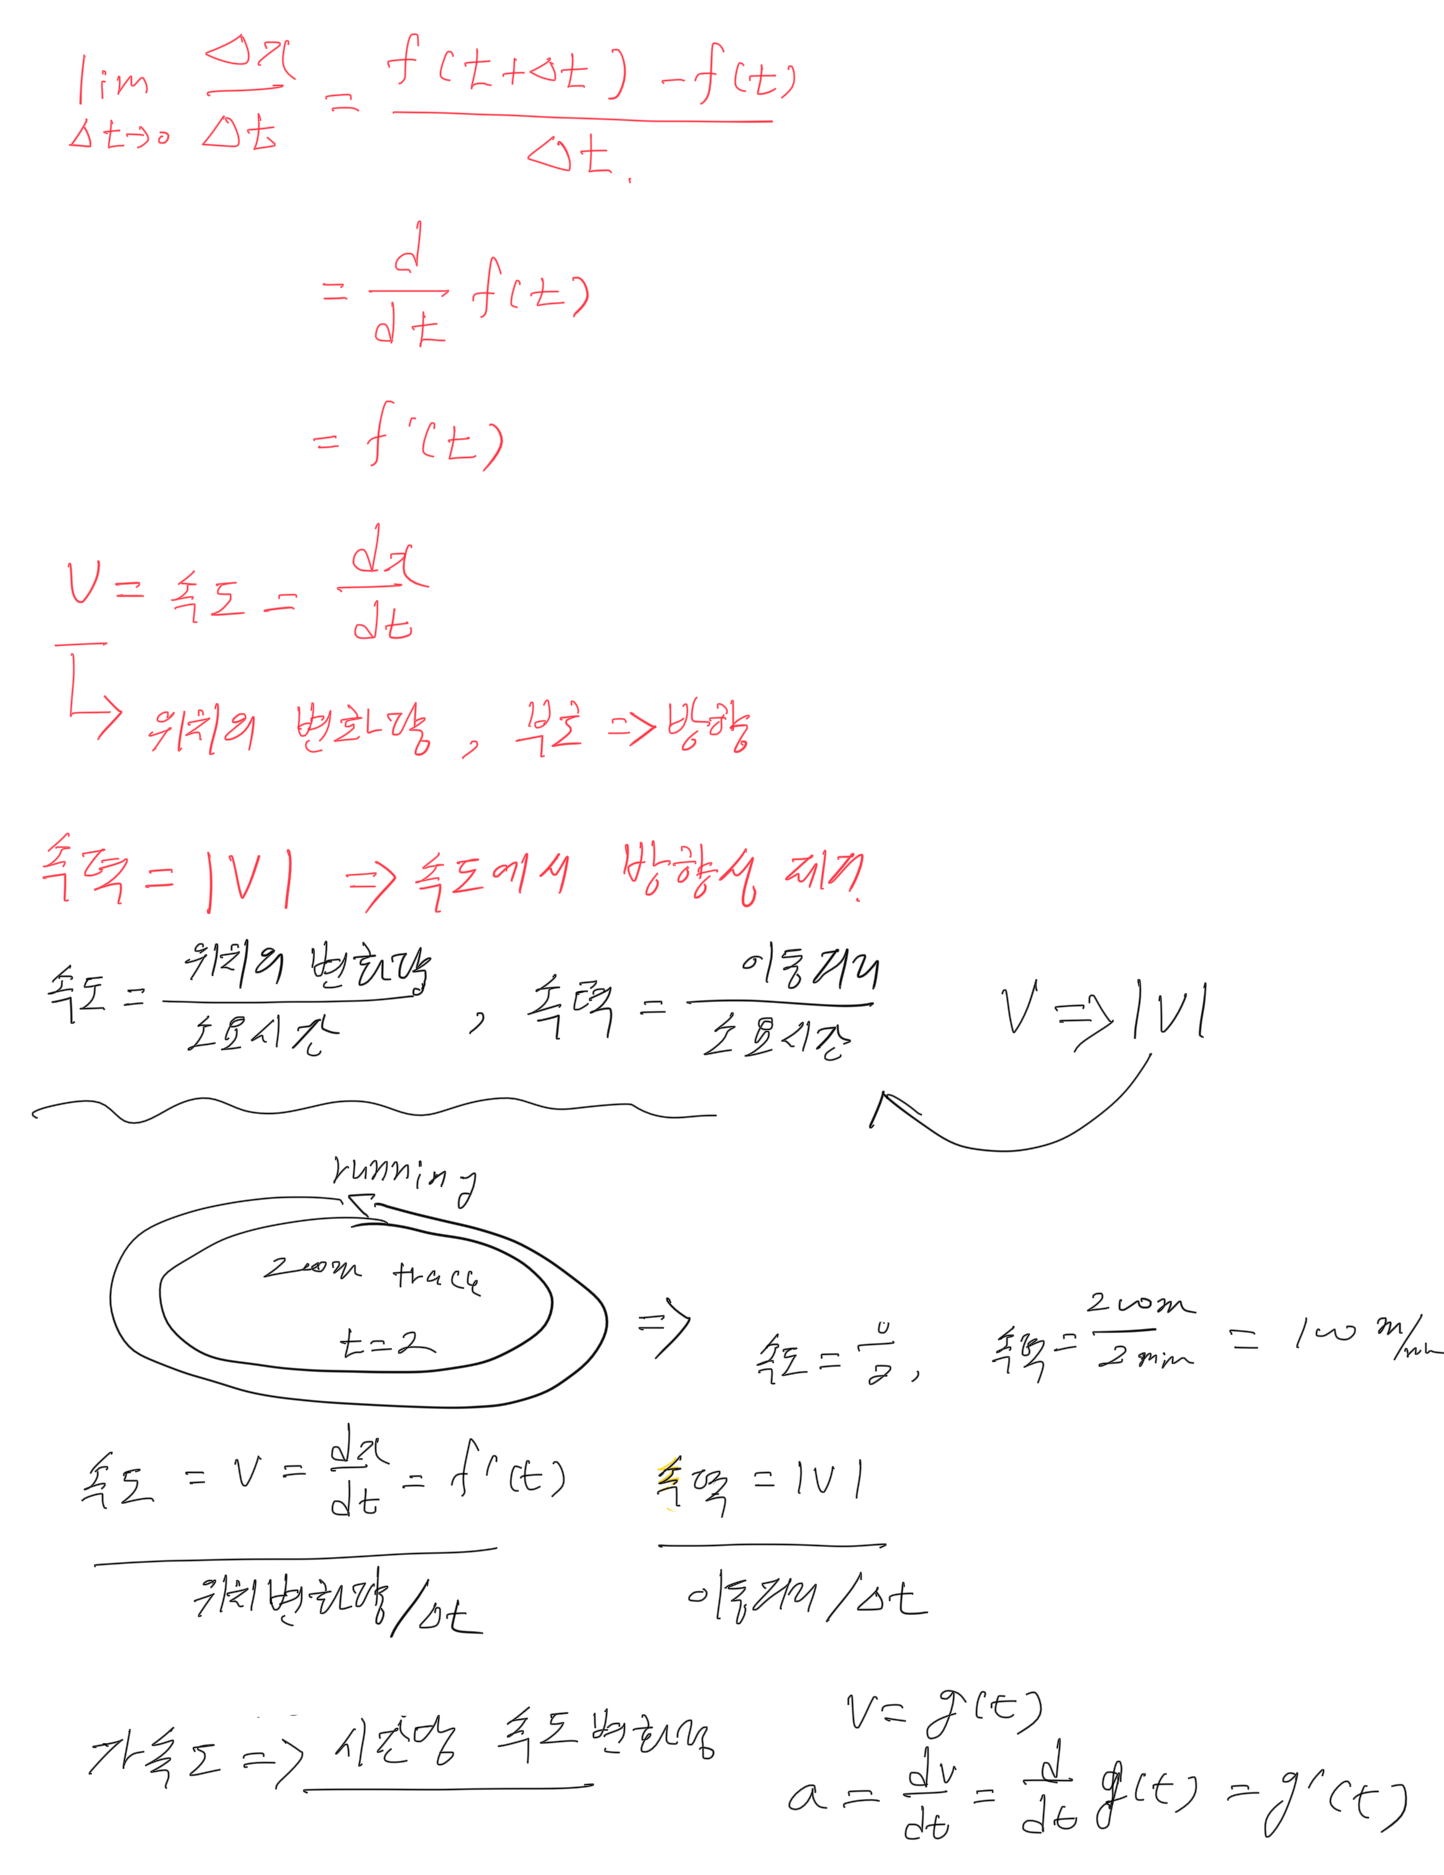 lim Δt→0 Δx/Δt = f(t+Δt) - f(t) / Δt.
= d/dt f(t)
= f'(t)
V = 속도 = dx/dt
↳ 위치의 변화량, 부호 => 방향
속력 = |V| => 속도에서 방향성 제거.
속도 = 위치의 변화량/소요시간, 속력 = 이동거리/소요시간 V => |V|
running
200m track
t=2
=> 속도 = 0/2, 속력 = 200m/2min = 100 m/min
속도 = V = dx/dt = f'(t) 속력 = |V|
위치변화량/Δt 이동거리/Δt
가속도 => 시간당 속도변화량
V = g(t)
a = dv/dt = d/dt g(t) = g'(t)